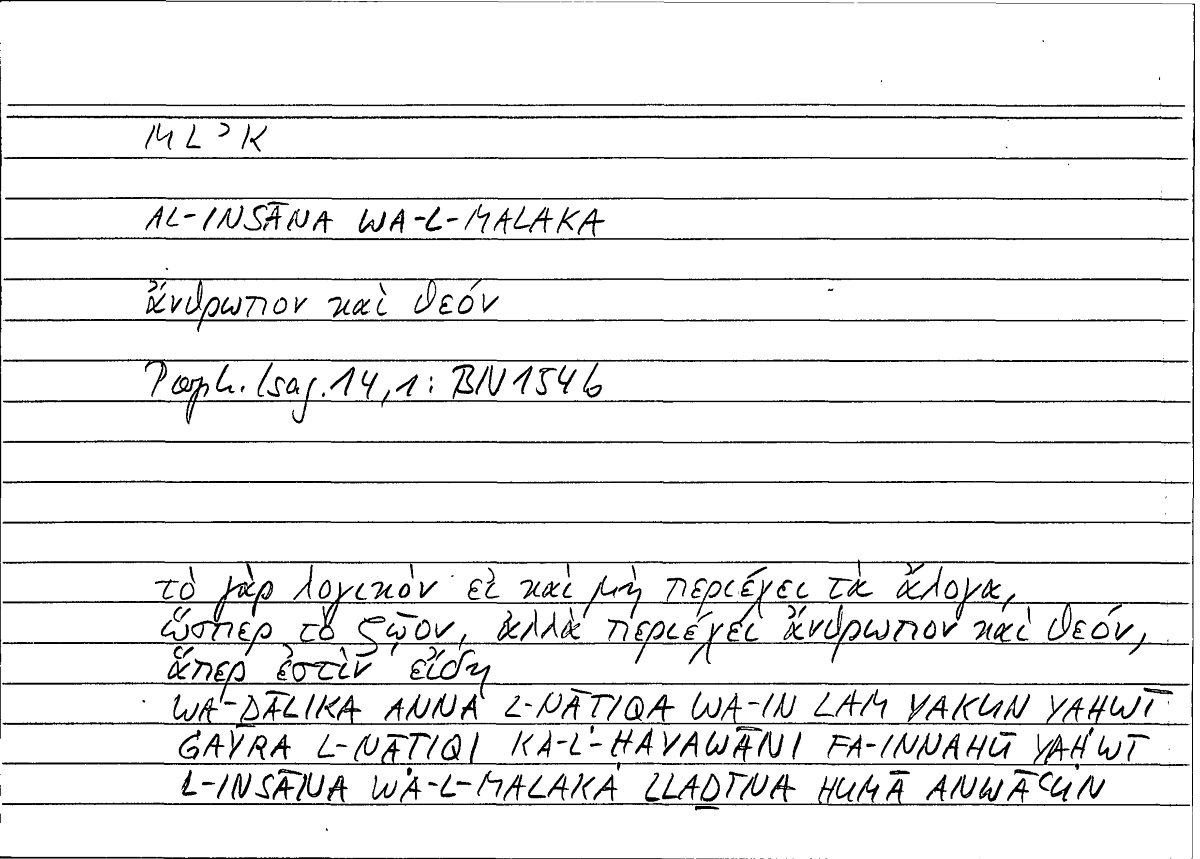 ML᾿K
AL-INSĀNA WA-L-MALAKA
ἄνθρωπον καὶ θεόν
Porph. Isag. 14,1: BN 154 b
τὸ γὰρ λογικὸν εἰ καὶ μὴ περιέχει τὰ ἄλογα,
ὥσπερ τὸ ζῷον, ἀλλὰ περιέχει ἄνθρωπον καὶ θεόν,
ἅπερ ἐστὶν εἴδη
WA-ḎĀLIKA ANNA L-NĀṬIQA WA-IN LAM YAKUN YAḤWĪ
ĠAYRA L-NĀṬIQI KA-L-ḤAYAWĀNI FA-INNAHŪ YAḤWĪ
L-INSĀNA WA-L-MALAKA LLAḎĪNA HUMĀ ANWĀʿUN